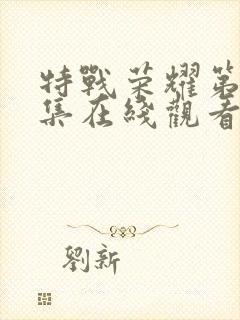 特戰荣耀第
集在綫觀看
劉新